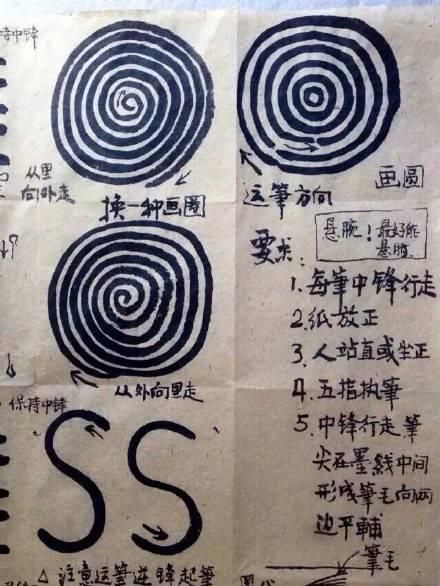 保持中锋
从里
向外走
换一种画圈
运筆方向
画圆
悬腕！最好能
悬肘
要求：
1. 每筆中锋行走
2. 纸放正
3. 人站直或坐正
4. 五指执筆
5. 中锋行走筆
尖在墨线中间
形成筆毛向两
边平辅
筆毛
从外向里走
保持中锋
SS
△注意运筆逆锋起筆